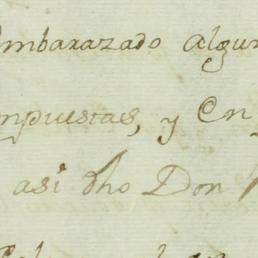 embarazado algun
mpuestas, y en
asi dho Don